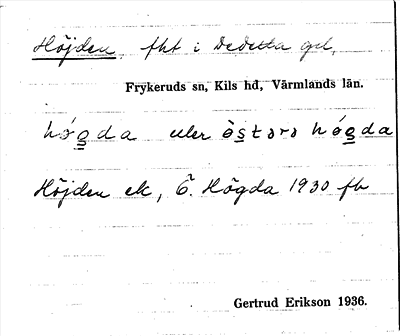 Höjden, fht i Dedetta gd,
Frykeruds sn, Kils hd, Värmlands län.
hǿgda eller ös̲tərə hǿgda
Höjden ek, Ö. Högda 1930 fb
Gertrud Erikson 1936.